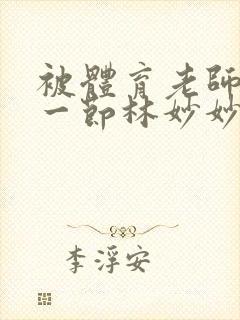 被體育老師
一節林妙妙
李浮安